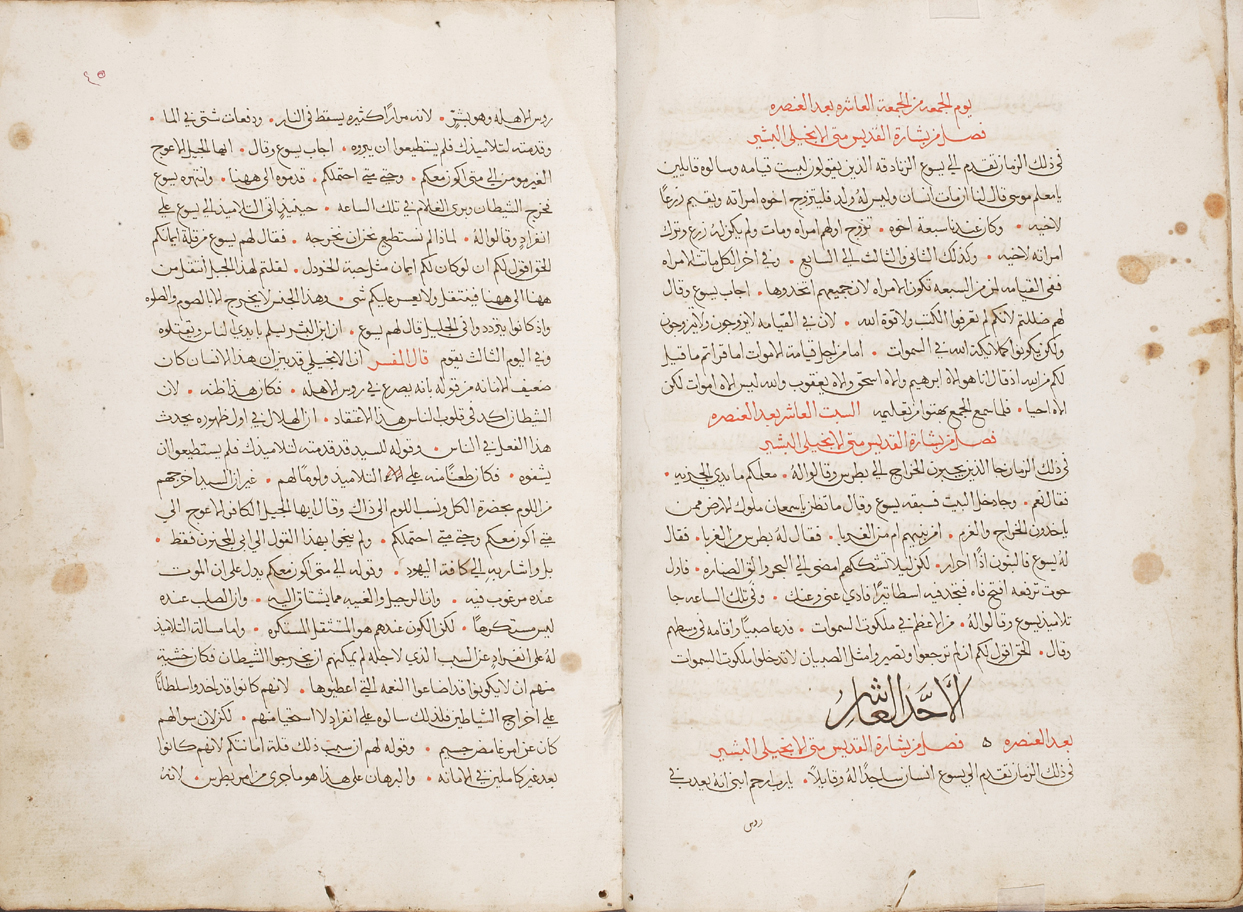 يوم الجمعه من الجمعة العاشره بعد العنصره
فصل من بشارة القديس متى الانجيلي البشير
في ذلك الزمان تقدم الى يسوع الزنادقه الذين يقولون ليست قيامه وسالوه قايلين
يا معلم موسى قال لنا ان مات انسان وليس له ولد فليتزوج اخوه امراته ويقيم زرعًا
لاخيه • وكان عندنا سبعة اخوه • تزوج اولهم امراه ومات ولم يكن له زرع وترك
امراته لاخيه • وكذلك الثاني والثالث الى السابع • وفي اخر الكل ماتت الامراه
ففي القيامه لمن من السبعه تكون الامراه لان جميعهم اتخدوها • اجاب يسوع وقال
لهم ضللتم لانكم لم تعرفوا الكتب ولا قوة الله • لان في القيامه لا يزوجون ولا يتزوجون
ولكن يكونوا كملايكة الله في السموات • اما من اجل قيامة الاموات اما قراتم ما قيل
لكم من الله اذ قال انا هو الاه ابرهيم والاه اسحق والاه يعقوب والله ليس الاه اموات لكن
الاه احيا • فلما سمع الجمع بهتوا من تعليمه السبت العاشر بعد العنصره
فصل من بشارة القديس متى الانجيلي البشير
في ذلك الزمان جا الذين يجبون الخراج الى بطرس وقالوا لهُ • معلمكم ما يدي الجزيه •
فقال نعم • وجا دخل البيت فسبقه يسوع وقال ما تظن يا سمعان ملوك الارض ممن
ياخدون الخراج والغرم • امن بنيهم ام من الغربا • فقال لهُ بطرس من الغربا • فقال
لهُ يسوع فالبنون اذًا احرار • لكن ليلا نشككهم امضي الى البحر والق الصناره • فاول
حوت ترفعه افتح فاه فتجد فيه اسطاتيرًا فادي عني وعنك • وفي تلك الساعه جا
تلاميذ يسوع وقالوا لهُ • من الاعظم في ملكوت السموات • فدعا صبيًا واقامه في وسطهم
وقال • الحق اقول لكم ان لم ترجعوا وتصيروا مثل الصبيان لا تدخلوا ملكوت السموات
الاحد العاشر
بعد العنصره ه فصل من بشارة القديس متى الانجيلي البشير
في ذلك الزمان تقدم الى يسوع انسان ساجدًا لهُ وقايلاً • يا رب ارحم ابني انه يعدب في
روس
روس الاهله وهو بشرّ • لانه مرارًا كثيره يسقط في النار • ودفعات شتى في الما •
وقدمته لتلاميذك فلم يستطيعوا ان يبروه • اجاب يسوع وقال • ايها الجيل الاعوج
الغير مومن الى متى اكون معكم • وحتى متى احتملكم • قدموه الى ههنا • وانتهره يسوع
فخرج الشيطان وبرى الغلام في تلك الساعه • حينيذٍ اتى التلاميذ الى يسوع على
انفرادٍ وقالوا لهُ • لماذا لم نستطيع نحن ان نخرجه • فقال لهم يسوع من قلة ايمانكم
الحق اقول لكم ان لو كان لكم ايمان مثل حبة الخردل • لقلتم لهذا الجبل انتقل من
ههنا الى ههنا فينتقل ولا يعسر عليكم شى • وهذا الجنس لا يخرج الا بالصوم والصلوه
واذ كانوا يترددوا في الجليل قال لهم يسوع • ان ابن البشر يسلم بايدي الناس ويقتلوه
وفي اليوم الثالث يقوم قال المفسر ان الانجيلي قد بين ان هذا الانسان كان
ضعيف الامانه من قوله بانه يصرع في روس الاهله • فكان هذا ظنه • لان
الشيطان اكد في قلوب الناس هذا الاعتقاد • ان الهلال في اول ظهوره يحدث
هذا الفعل في الناس • وقوله للسيد قد قدمته لتلاميذك فلم يستطيعوا ان
يشفوه • فكان طعنًا منه على التلاميذ ولومًا لهم • غير ان السيد اخرجهم
من اللوم بحضرة الكل ونسب اللوم الى ذاك وقال ايها الجيل الكافر الاعوج الى
متى اكون معكم وحتى متى احتملكم • ولم ينحوا بهذا القول الى ابي المجنون فقط •
بل واشار به الى كافة اليهود • وقوله الى متى اكون معكم يدل على ان الموت
عنده مرغوب فيه • وان الرحيل والغيبه مما يشتاق اليه • وان الصلب عنده
ليس مستكرهًا • لكن الكون عندهم هو المستثقل المستكره • واما مسالة التلاميذ
لهُ على انفرادٍ عن السبب الذي لاجله لم يمكنهم ان يخرجوا الشيطان فكان خشية
منهم ان لا يكونوا قد اضاعوا النعمه التي اعطيوها • لانهم كانوا قد اخدوا سلطانًا
على اخراج الشياطين فلذلك سالوه على انفراد لا استحيا منهم • لكن لان سوالهم
كان عن امر غامض جسيم • وقوله لهم ان سبب ذلك قلة امانتكم لانهم كانوا
بعد غير كاملين في الامانه • والبرهان على هذا هو ما جرى من امر بطرس • لانهُ